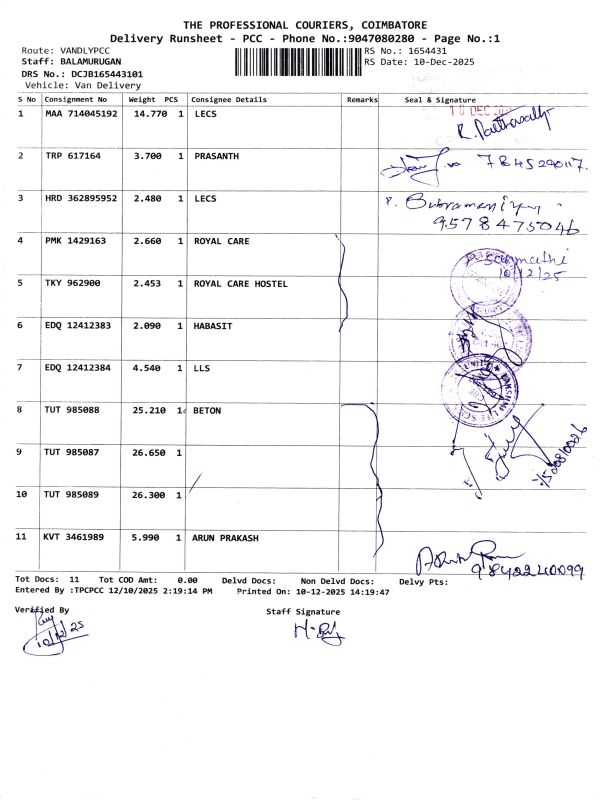 THE PROFESSIONAL COURIERS, COIMBATORE
Delivery Runsheet - PCC - Phone No.:9047080280 - Page No.:1
Route: VANDLYPCC RS No.: 1654431
Staff: BALAMURUGAN RS Date: 10-Dec-2025
DRS No.: DCJB165443101
Vehicle: Van Delivery
S No Consignment No Weight PCS Consignee Details Remarks Seal & Signature
1 MAA 714045192 14.770 1 LECS
10 DEC
2 TRP 617164 3.700 1 PRASANTH
3 HRD 362895952 2.480 1 LECS
9578475046
4 PMK 1429163 2.660 1 ROYAL CARE
10/12/25
5 TKY 962900 2.453 1 ROYAL CARE HOSTEL
6 EDQ 12412383 2.090 1 HABASIT
7 EDQ 12412384 4.540 1 LLS
8 TUT 985088 25.210 1 BETON
9 TUT 985087 26.650 1
10 TUT 985089 26.300 1
11 KVT 3461989 5.990 1 ARUN PRAKASH
9842240099
Tot Docs: 11 Tot COD Amt: 0.00 Delvd Docs: Non Delvd Docs: Delvy Pts:
Entered By :TPCPCC 12/10/2025 2:19:14 PM Printed On: 10-12-2025 14:19:47
Verified By Staff Signature
10/12/25